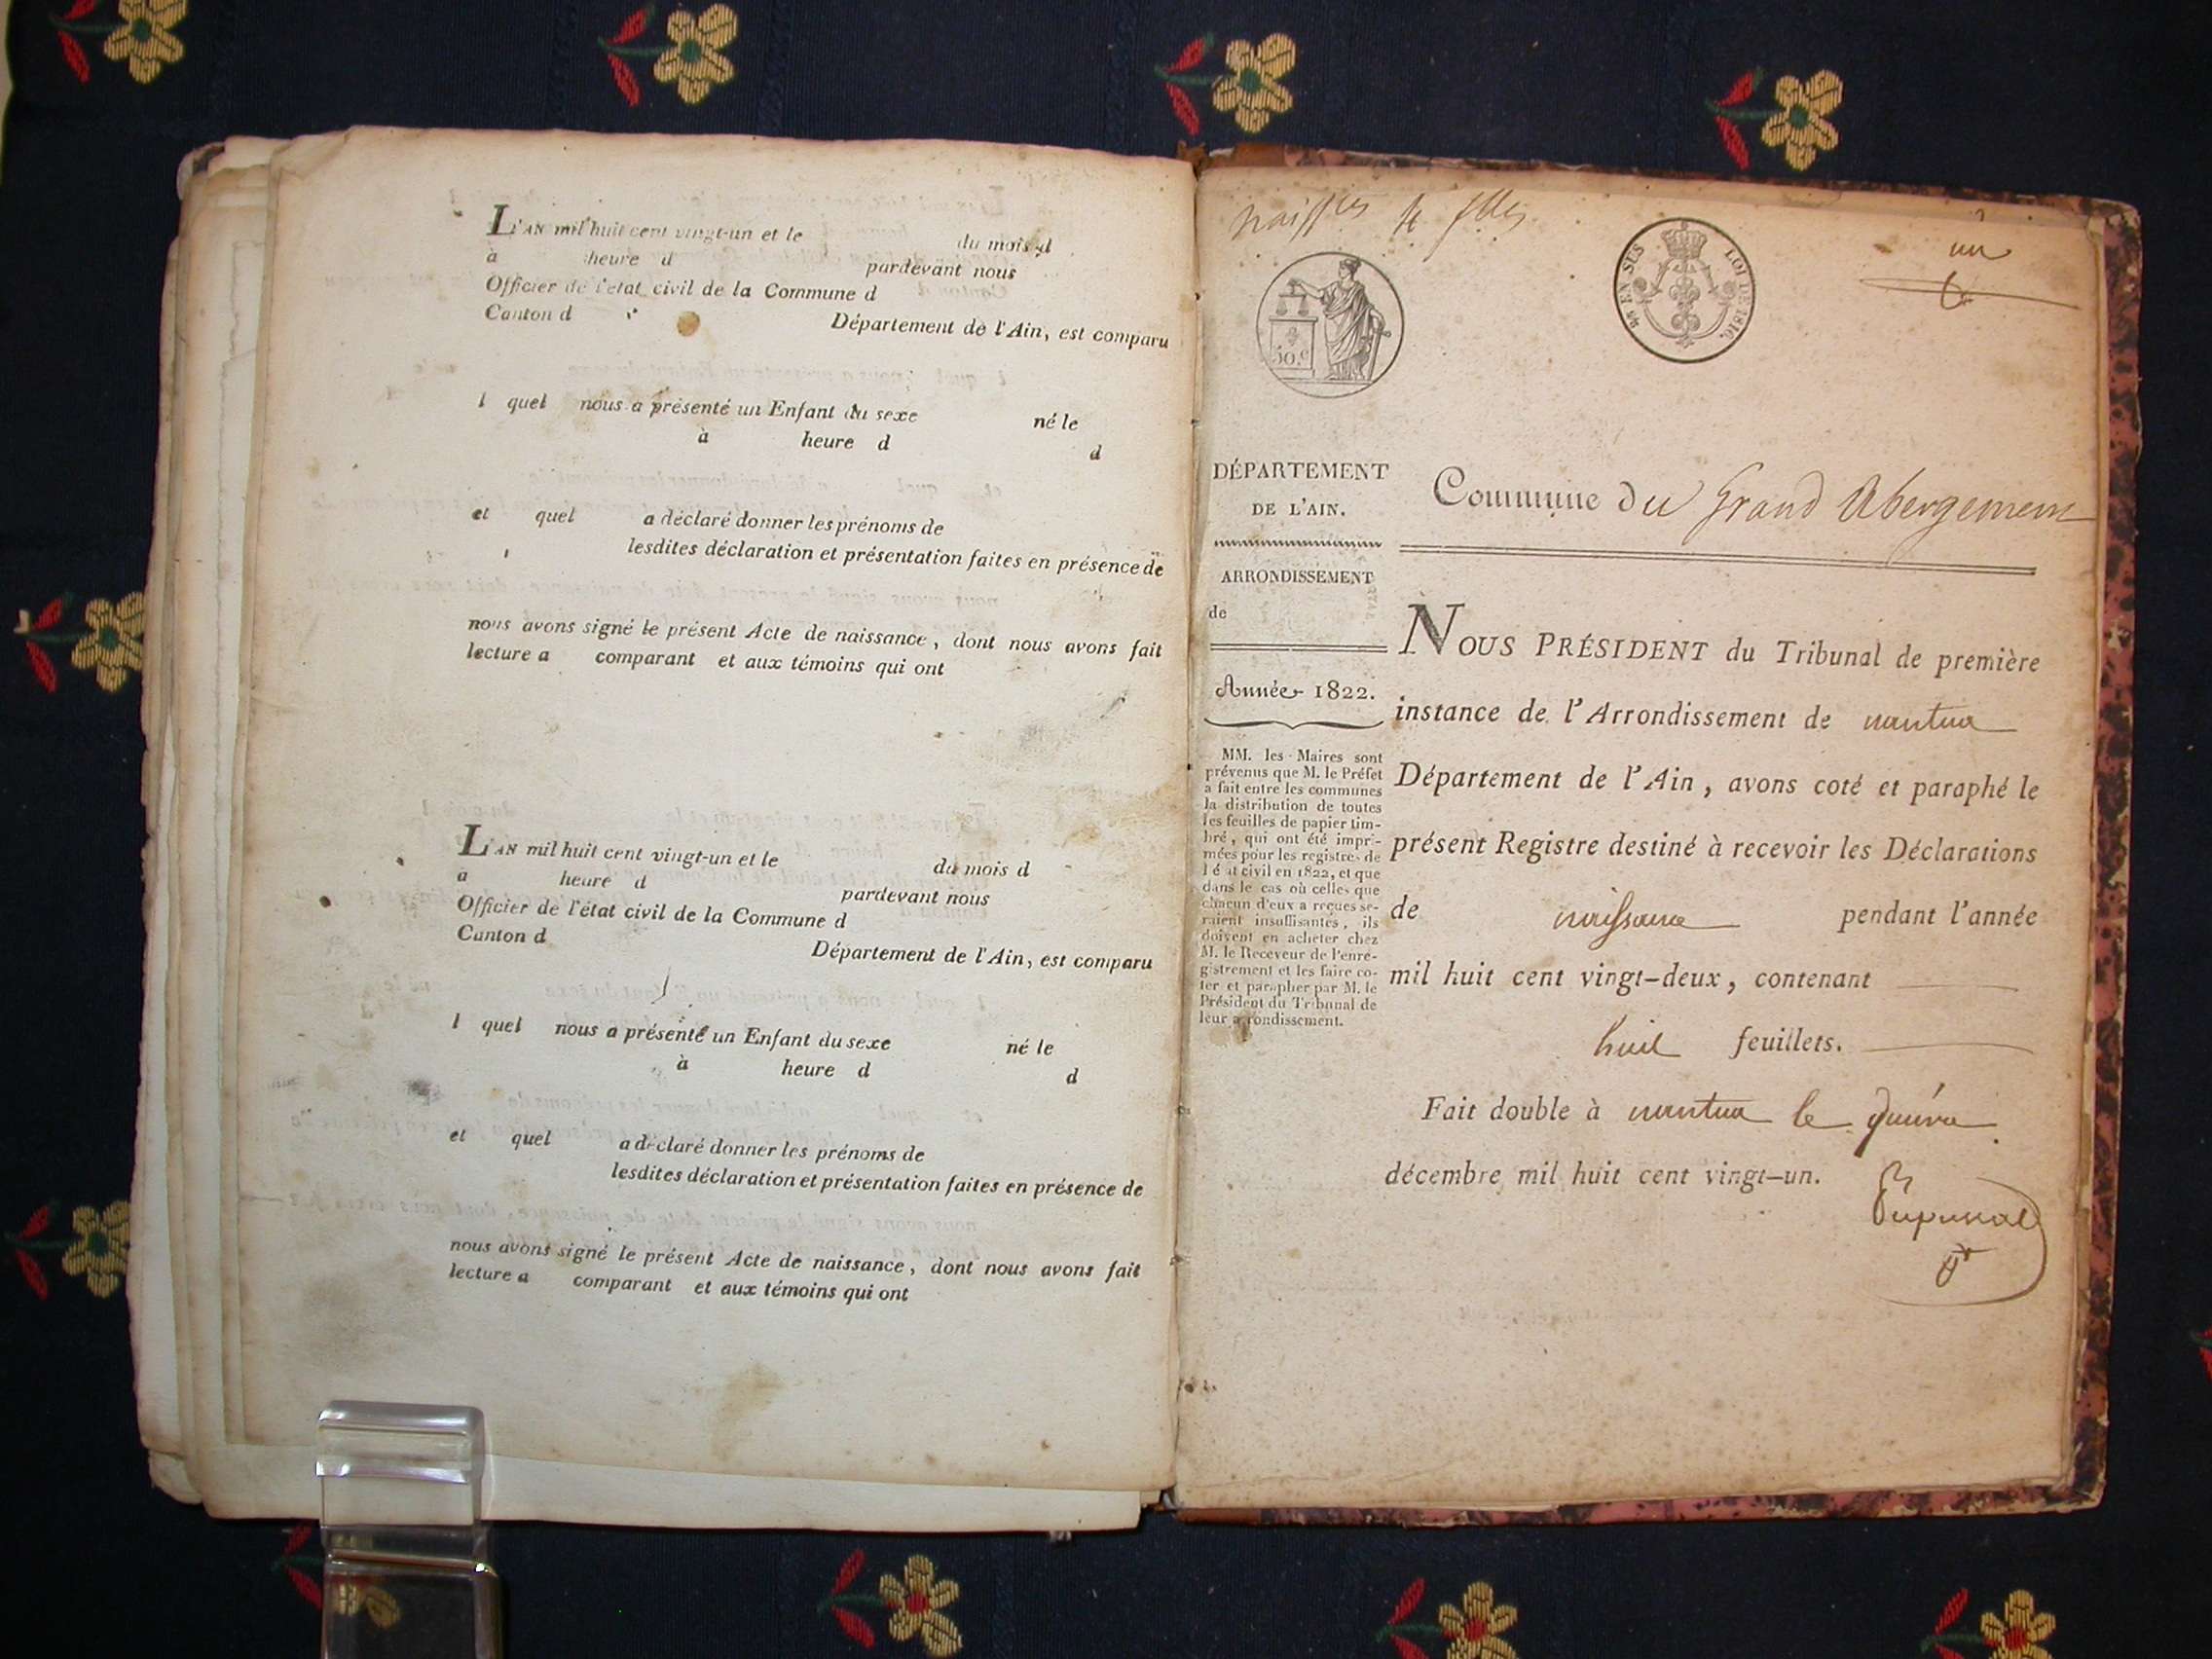 L'AN mil huit cent vingt-un et le du mois d
à heure d pardevant nous
Officier de l'état civil de la Commune d
Canton d Département de l'Ain, est comparu
l quel nous a présenté un Enfant du sexe né le
à heure d d
et quel a déclaré donner les prénoms de
lesdites déclaration et présentation faites en présence de
nous avons signé le présent Acte de naissance, dont nous avons fait
lecture a comparant et aux témoins qui ont
L'AN mil huit cent vingt-un et le du mois d
à heure d pardevant nous
Officier de l'état civil de la Commune d
Canton d Département de l'Ain, est comparu
l quel nous a présenté un Enfant du sexe né le
à heure d d
et quel a déclaré donner les prénoms de
lesdites déclaration et présentation faites en présence de
nous avons signé le présent Acte de naissance, dont nous avons fait
lecture a comparant et aux témoins qui ont
un
50.c
EN SUS
LOI DE 1816.
DÉPARTEMENT
DE L'AIN.
ARRONDISSEMENT
de
Année 1822.
MM. les Maires sont
prévenus que M. le Préfet
a fait entre les communes
la distribution de toutes
les feuilles de papier tim-
bré, qui ont été impri-
mées pour les registres de
l'état civil en 1822, et que
dans le cas où celles que
chacun d'eux a reçues se-
raient insuffisantes, ils
doivent en acheter chez
M. le Receveur de l'enre-
gistrement et les faire co-
ter et parapher par M. le
Président du Tribunal de
leur arrondissement.
Commune du Grand Abergement
NOUS PRÉSIDENT du Tribunal de première
instance de l'Arrondissement de nantua
Département de l'Ain, avons coté et paraphé le
présent Registre destiné à recevoir les Déclarations
de naissance pendant l'année
mil huit cent vingt-deux, contenant
huit feuillets.
Fait double à nantua le
décembre mil huit cent vingt-un.